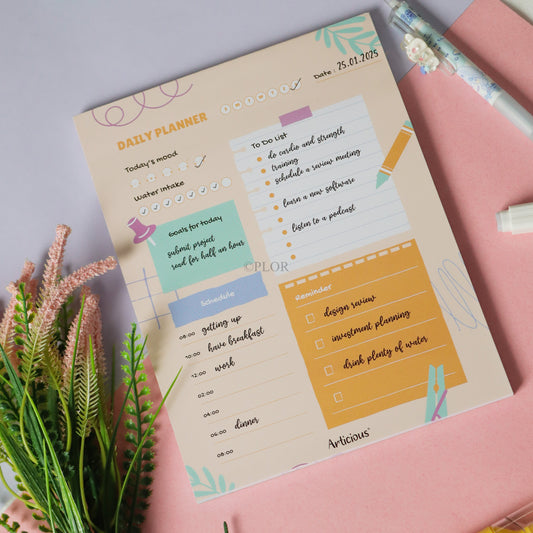 25.01.2025
Date :
S M T W T F S
DAILY PLANNER
To Do List
do cardio and strength
training
schedule a review meeting
learn a new software
listen to a podcast
Today's mood
Water Intake
Goals for today
submit project
read for half an hour
©PLOR
Schedule
08:00 getting up
10:00 have breakfast
12:00 work
02:00
04:00
06:00 dinner
08:00
Reminder
design review
investment planning
drink plenty of water
Articious